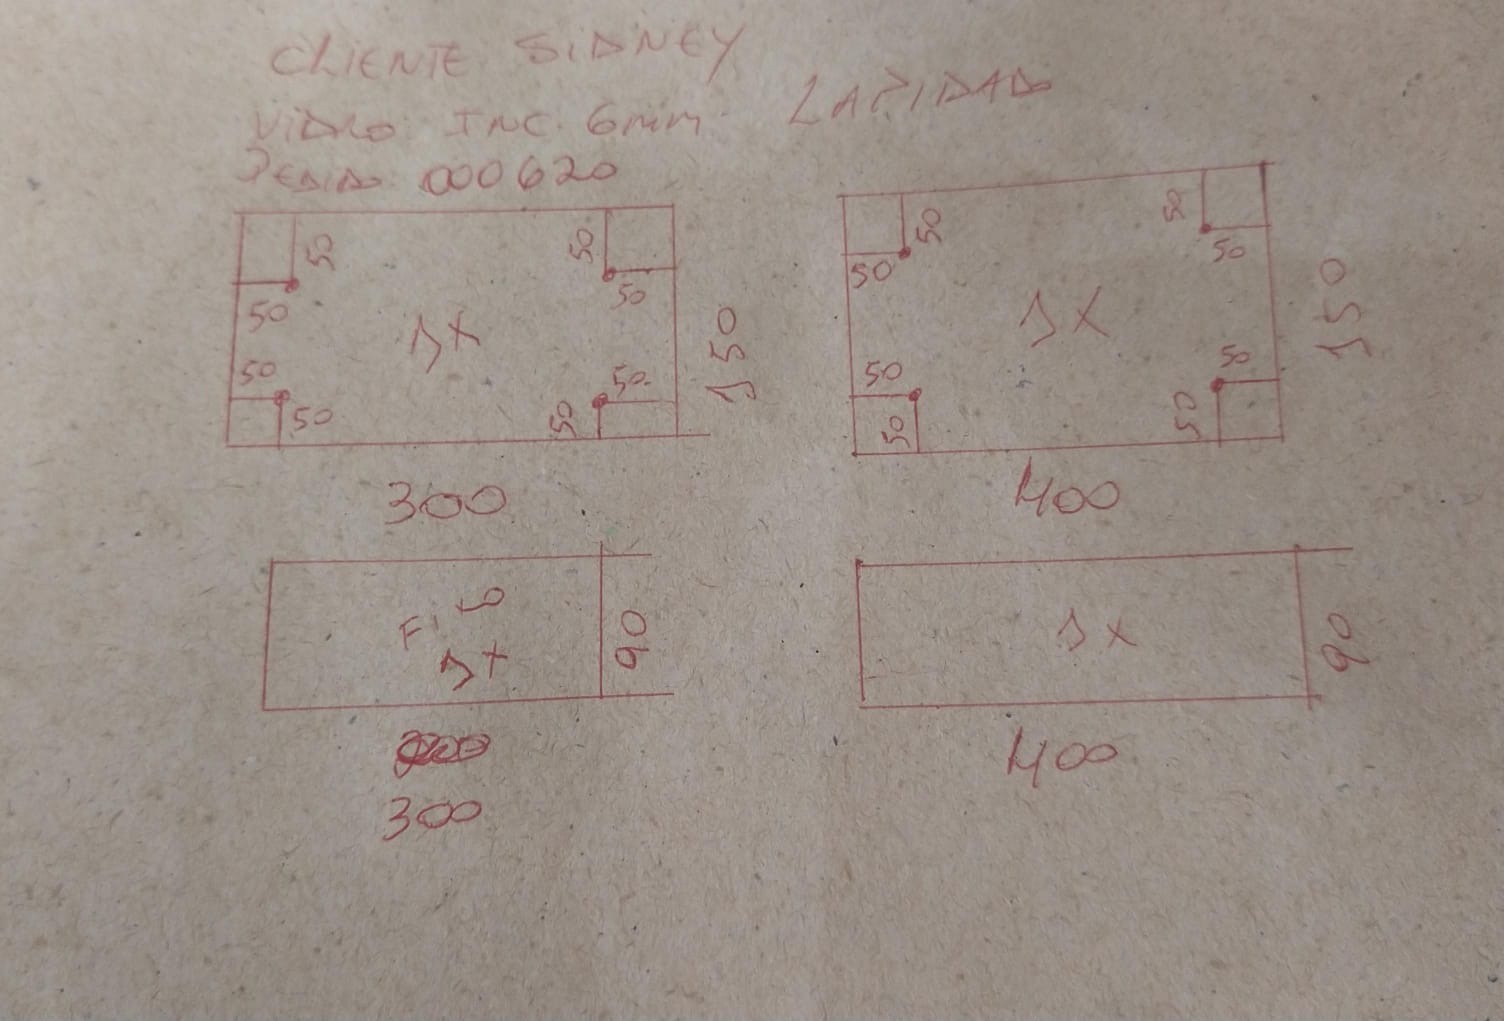 CLIENTE SIDNEY
VIDRO INC. 6mm LAPIDADO
PEDIDO 000620
50 50 50 50
50 50 50 50
1X 1X
150 150
50 50 50 50
50 50 50 50
300 400
1X 1X
90 90
300 400